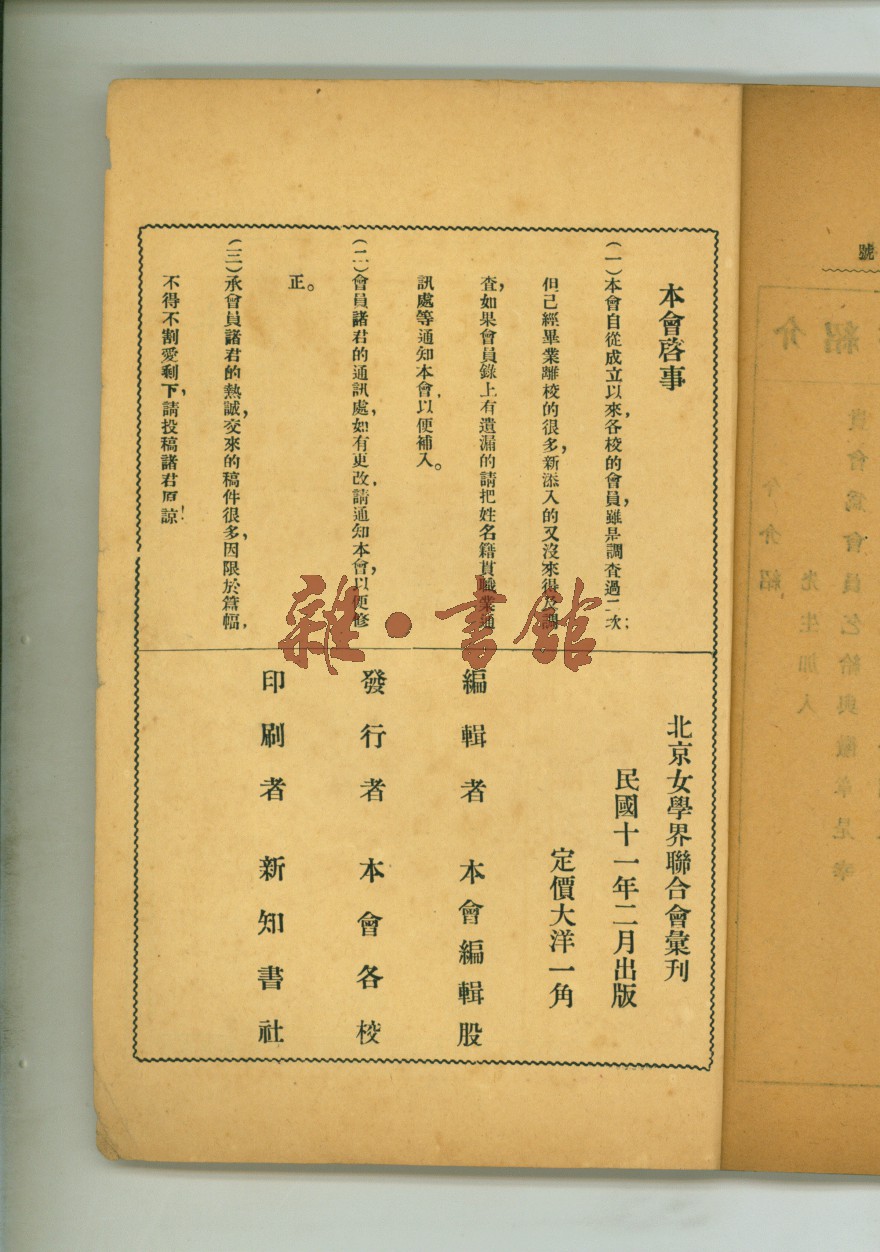 本會啓事
(一)本會自從成立以來,各校的會員,雖是調查過二次;
但已經畢業離校的很多,新添入的又沒來得及調
查,如果會員錄上有遺漏的請把姓名籍貫職業通
訊處等通知本會,以便補入。
(二)會員諸君的通訊處,如有更改,請通知本會,以便修
正。
(三)承會員諸君的熱誠,交來的稿件很多,因限於篇幅,
不得不割愛剩下,請投稿諸君原諒!
北京女學界聯合會彙刊
民國十一年二月出版
定價大洋一角
編輯者 本會編輯股
發行者 本會各校
印刷者 新知書社
雜·書館
號
紹
介
貴會為會員乞給與徽章是幸
先生加入
今介紹